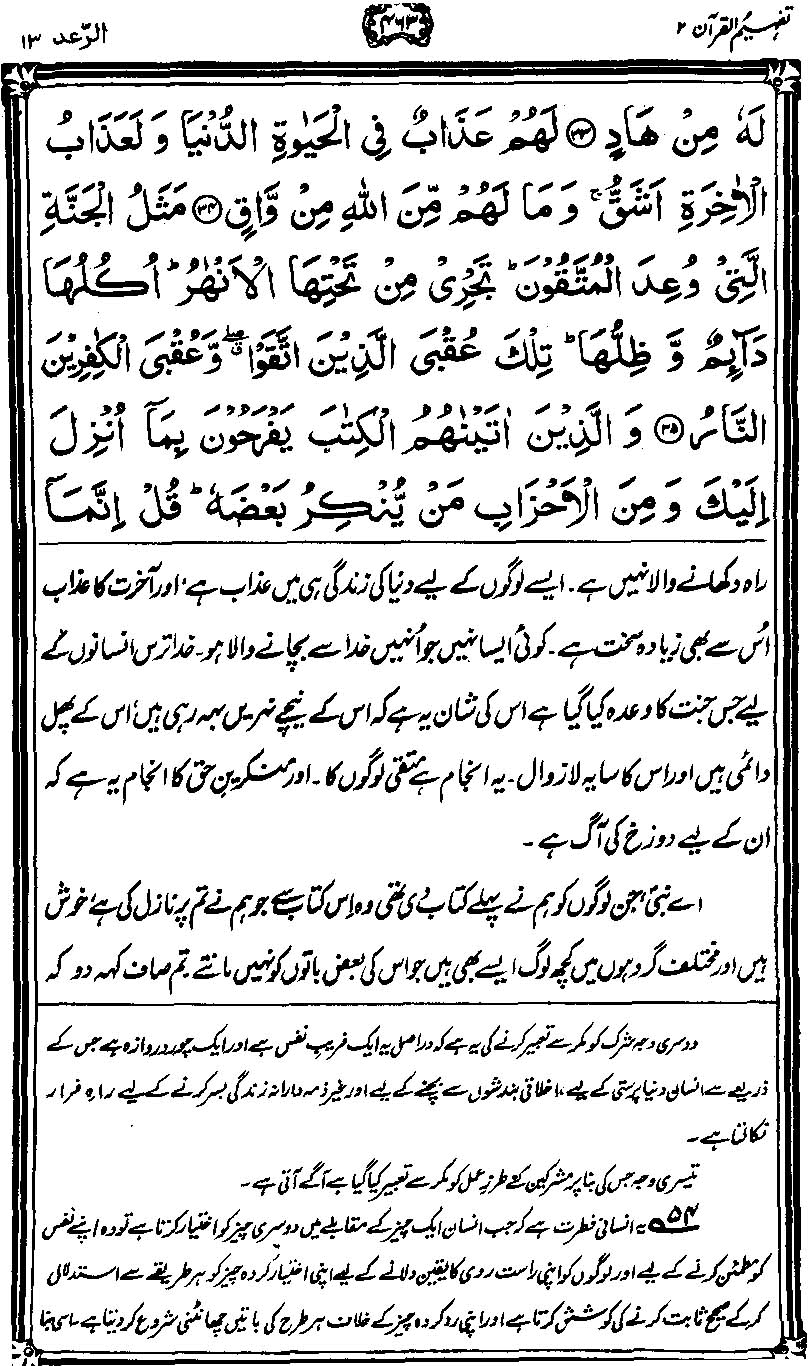 تفہیم القرآن ۲
۴۶۳
الرّعد ۱۳
لَهٗ مِنْ هَادٍ ﴿۳۳﴾ لَهُمْ عَذَابٌ فِی الْحَیٰوةِ الدُّنْیَا وَ لَعَذَابُ
الْاٰخِرَةِ اَشَقُّ ۚ وَ مَا لَهُمْ مِّنَ اللّٰهِ مِنْ وَّاقٍ ﴿۳۴﴾ مَثَلُ الْجَنَّةِ
الَّتِیْ وُعِدَ الْمُتَّقُوْنَ ؕ تَجْرِیْ مِنْ تَحْتِهَا الْاَنْهٰرُ ؕ اُكُلُهَا
دَآىِٕمٌ وَّ ظِلُّهَا ؕ تِلْكَ عُقْبَی الَّذِیْنَ اتَّقَوْا ۖۗ وَّ عُقْبَی الْكٰفِرِیْنَ
النَّارُ ﴿۳۵﴾ وَ الَّذِیْنَ اٰتَیْنٰهُمُ الْكِتٰبَ یَفْرَحُوْنَ بِمَاۤ اُنْزِلَ
اِلَیْكَ وَ مِنَ الْاَحْزَابِ مَنْ یُّنْكِرُ بَعْضَهٗ ؕ قُلْ اِنَّمَاۤ
راہ دکھانے والا نہیں ہے۔ ایسے لوگوں کے لیے دنیا کی زندگی ہی میں عذاب ہے، اور آخرت کا عذاب
اُس سے بھی زیادہ سخت ہے۔ کوئی ایسا نہیں جو اُنہیں خدا سے بچانے والا ہو۔ خدا ترس انسانوں کے
لیے جس جنت کا وعدہ کیا گیا ہے اس کی شان یہ ہے کہ اس کے نیچے نہریں بہہ رہی ہیں، اس کے پھل
دائمی ہیں اور اس کا سایہ لازوال۔ یہ انجام ہے متقی لوگوں کا۔ اور منکرینِ حق کا انجام یہ ہے کہ
ان کے لیے دوزخ کی آگ ہے۔
اے نبیؐ، جن لوگوں کو ہم نے پہلے کتاب دی تھی وہ اِس کتاب سے جو ہم نے تم پر نازل کی ہے، خوش
ہیں اور مختلف گروہوں میں کچھ لوگ ایسے بھی ہیں جو اس کی بعض باتوں کو نہیں مانتے۔ تم صاف کہہ دو کہ
دوسری وجہ شرک کو مکر سے تعبیر کرنے کی یہ ہے کہ دراصل یہ ایک فریبِ نفس ہے اور ایک چور دروازہ ہے جس کے
ذریعے سے انسان دنیا پرستی کے لیے، اخلاقی بندشوں سے بچنے کے لیے اور غیر ذمہ دارانہ زندگی بسر کرنے کے لیے راہِ فرار
نکالتا ہے۔
تیسری وجہ جس کی بنا پر مشرکین کے طرزِ عمل کو مکر سے تعبیر کیا گیا ہے آگے آتی ہے۔
۵۴؎ یہ انسانی فطرت ہے کہ جب انسان ایک چیز کے مقابلے میں دوسری چیز کو اختیار کرتا ہے تو وہ اپنے نفس
کو مطمئن کرنے کے لیے اور لوگوں کو اپنی راست روی کا یقین دلانے کے لیے اپنی اختیار کردہ چیز کو ہر طریقے سے استدلال
کر کے صحیح ثابت کرنے کی کوشش کرتا ہے اور اپنی رد کردہ چیز کے خلاف ہر طرح کی باتیں چھانٹنی شروع کر دیتا ہے۔ اسی بنا